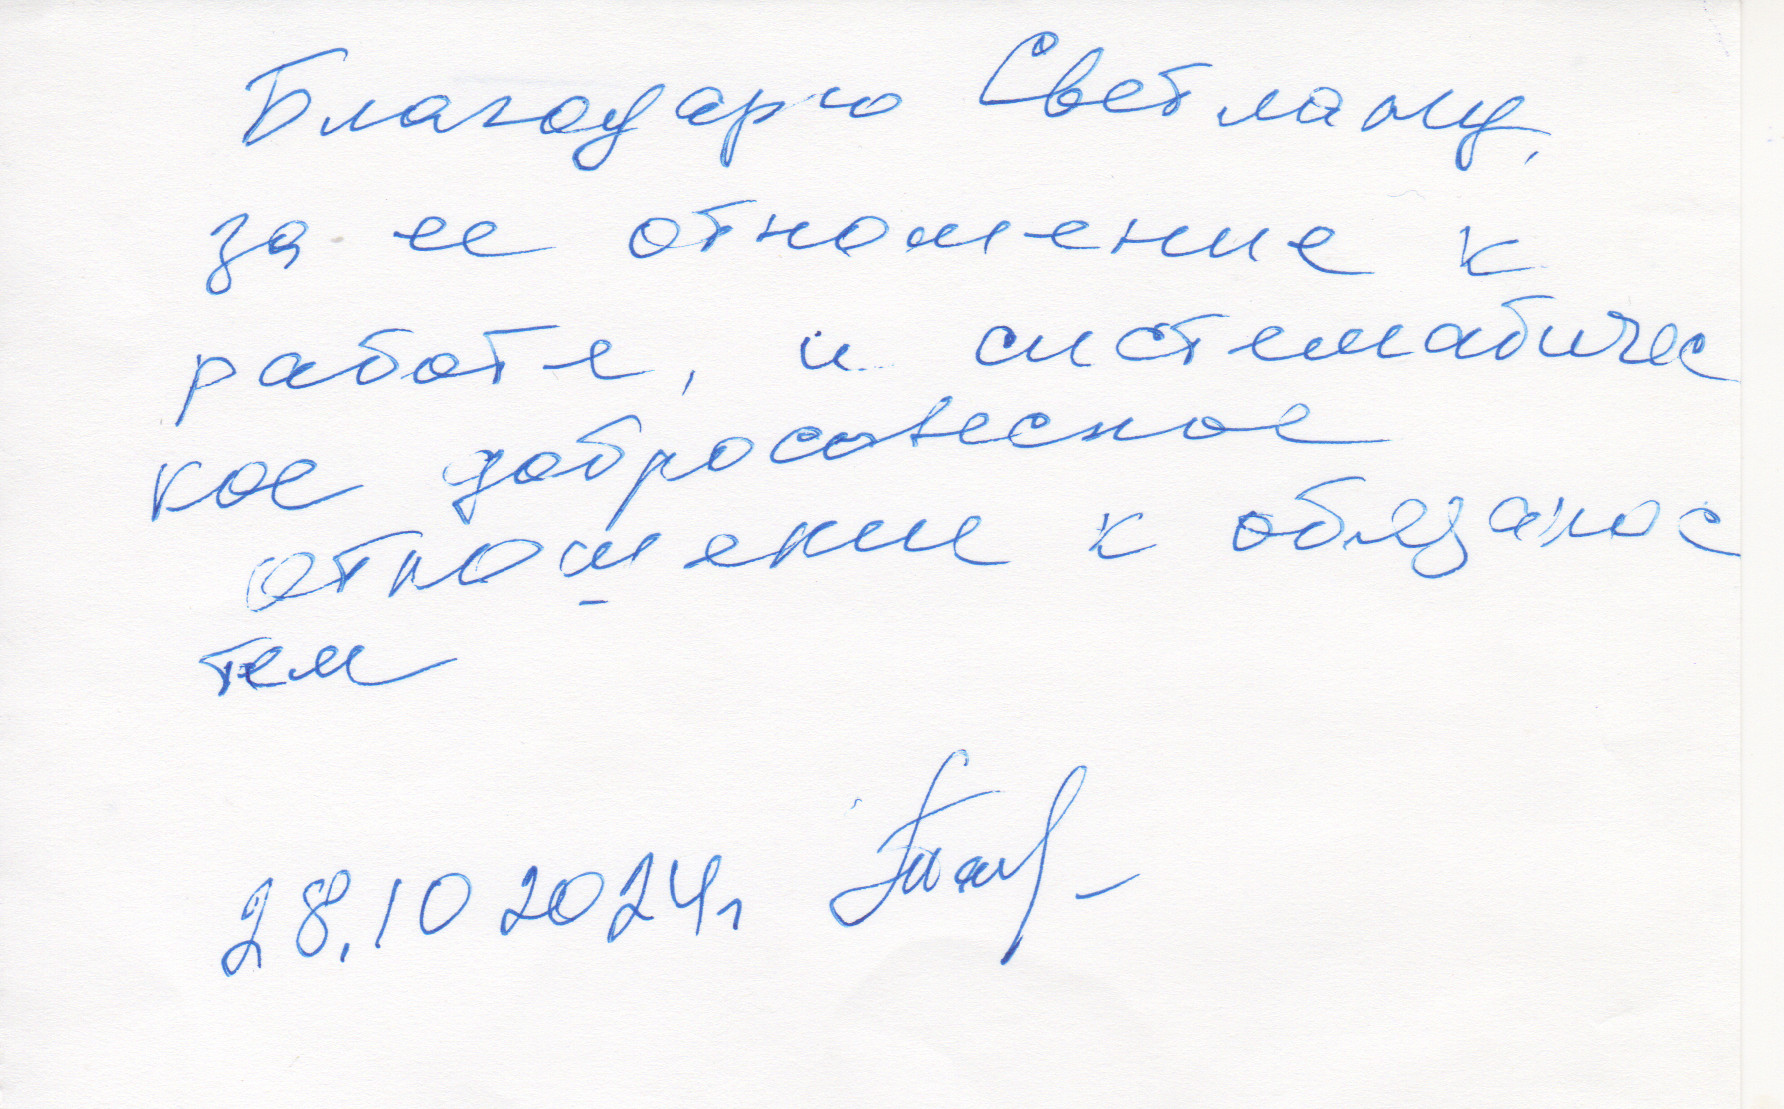 Благодарю Светлану,
за ее отношение к
работе, и систематичес
кое добросовесное
отношение к обязанос
тем
28.10 2024г